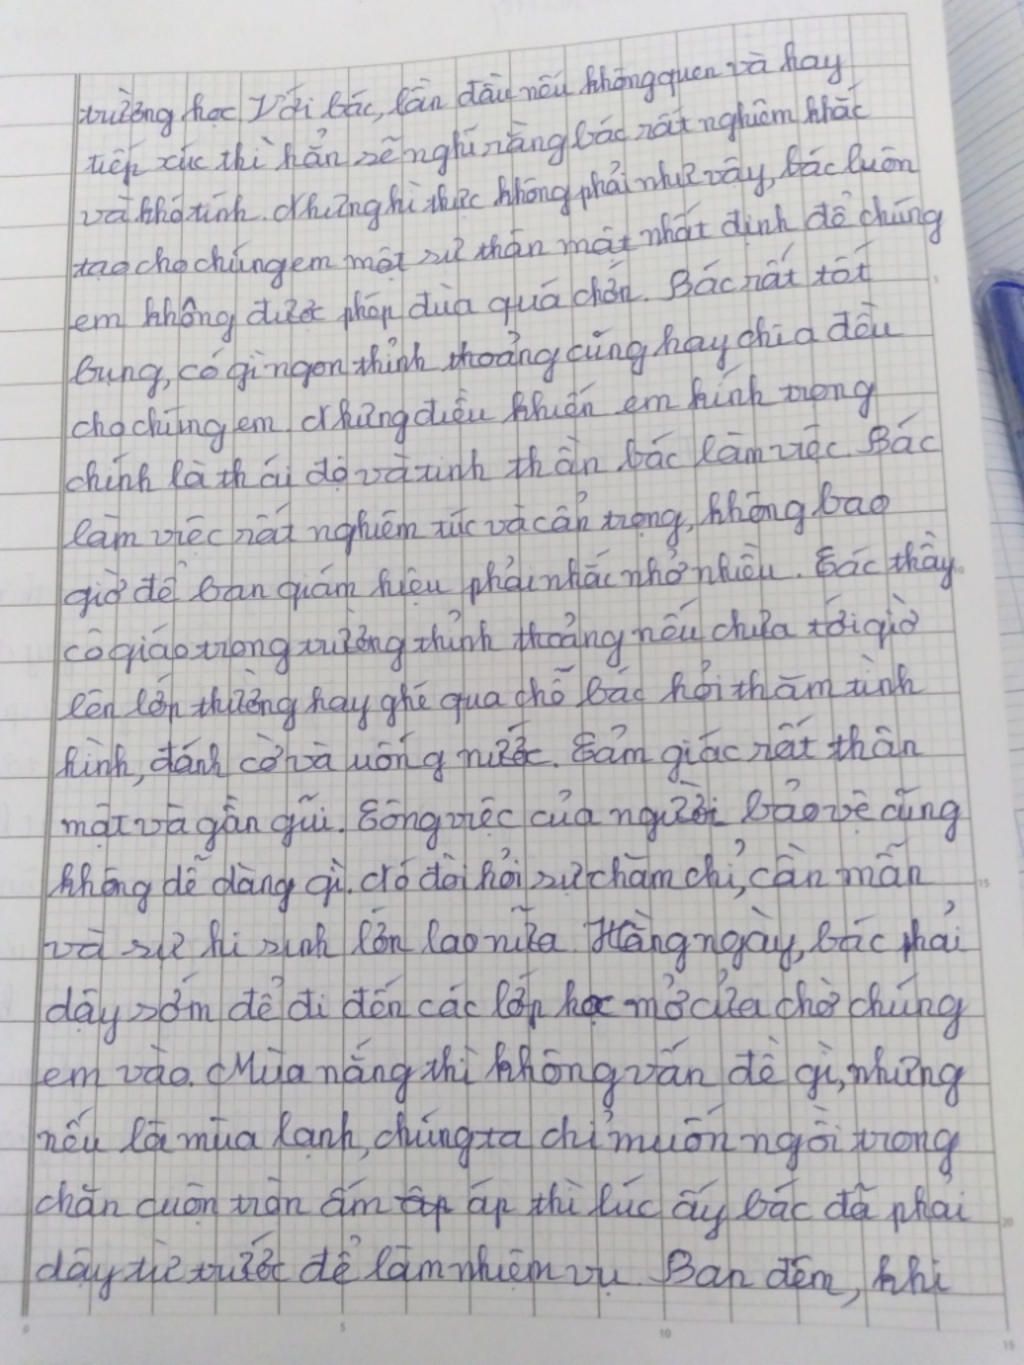 trường học Với bác, lần đầu nếu không quen và hay
tiếp xúc thì hẳn sẽ nghĩ rằng bác rất nghiêm khắc
và khó tính. Nhưng kì thực không phải như vậy, bác luôn
tạo cho chúng em một sự thân mật nhất định để chúng
em không được phép đùa quá chớn. Bác rất tốt
bụng, có gì ngon thỉnh thoảng cũng hay chia đều
cho chúng em. Những điều khiến em kính trọng
chính là thái độ và tinh thần bác làm việc. Bác
làm việc rất nghiêm túc và cẩn trọng, không bao
giờ để ban giám hiệu phải nhắc nhở nhiều. Các thầy
cô giáo trong trường thỉnh thoảng nếu chưa tới giờ
lên lớp thường hay ghé qua chỗ bác hỏi thăm tình
hình, đánh cờ và uống nước. Cảm giác rất thân
mật và gần gũi. Công việc của người bảo vệ cũng
không dễ dàng gì. Nó đòi hỏi sự chăm chỉ, cần mẫn
và sự hi sinh lớn lao nữa. Hằng ngày, bác phải
dậy sớm để đi đến các lớp học mở cửa chờ chúng
em vào. Mùa nắng thì không vấn đề gì, nhưng
nếu là mùa lạnh, chúng ta chỉ muốn ngồi trong
chăn cuộn tròn ấm áp thì lúc ấy bác đã phải
dậy từ trước để làm nhiệm vụ. Ban đêm, khi